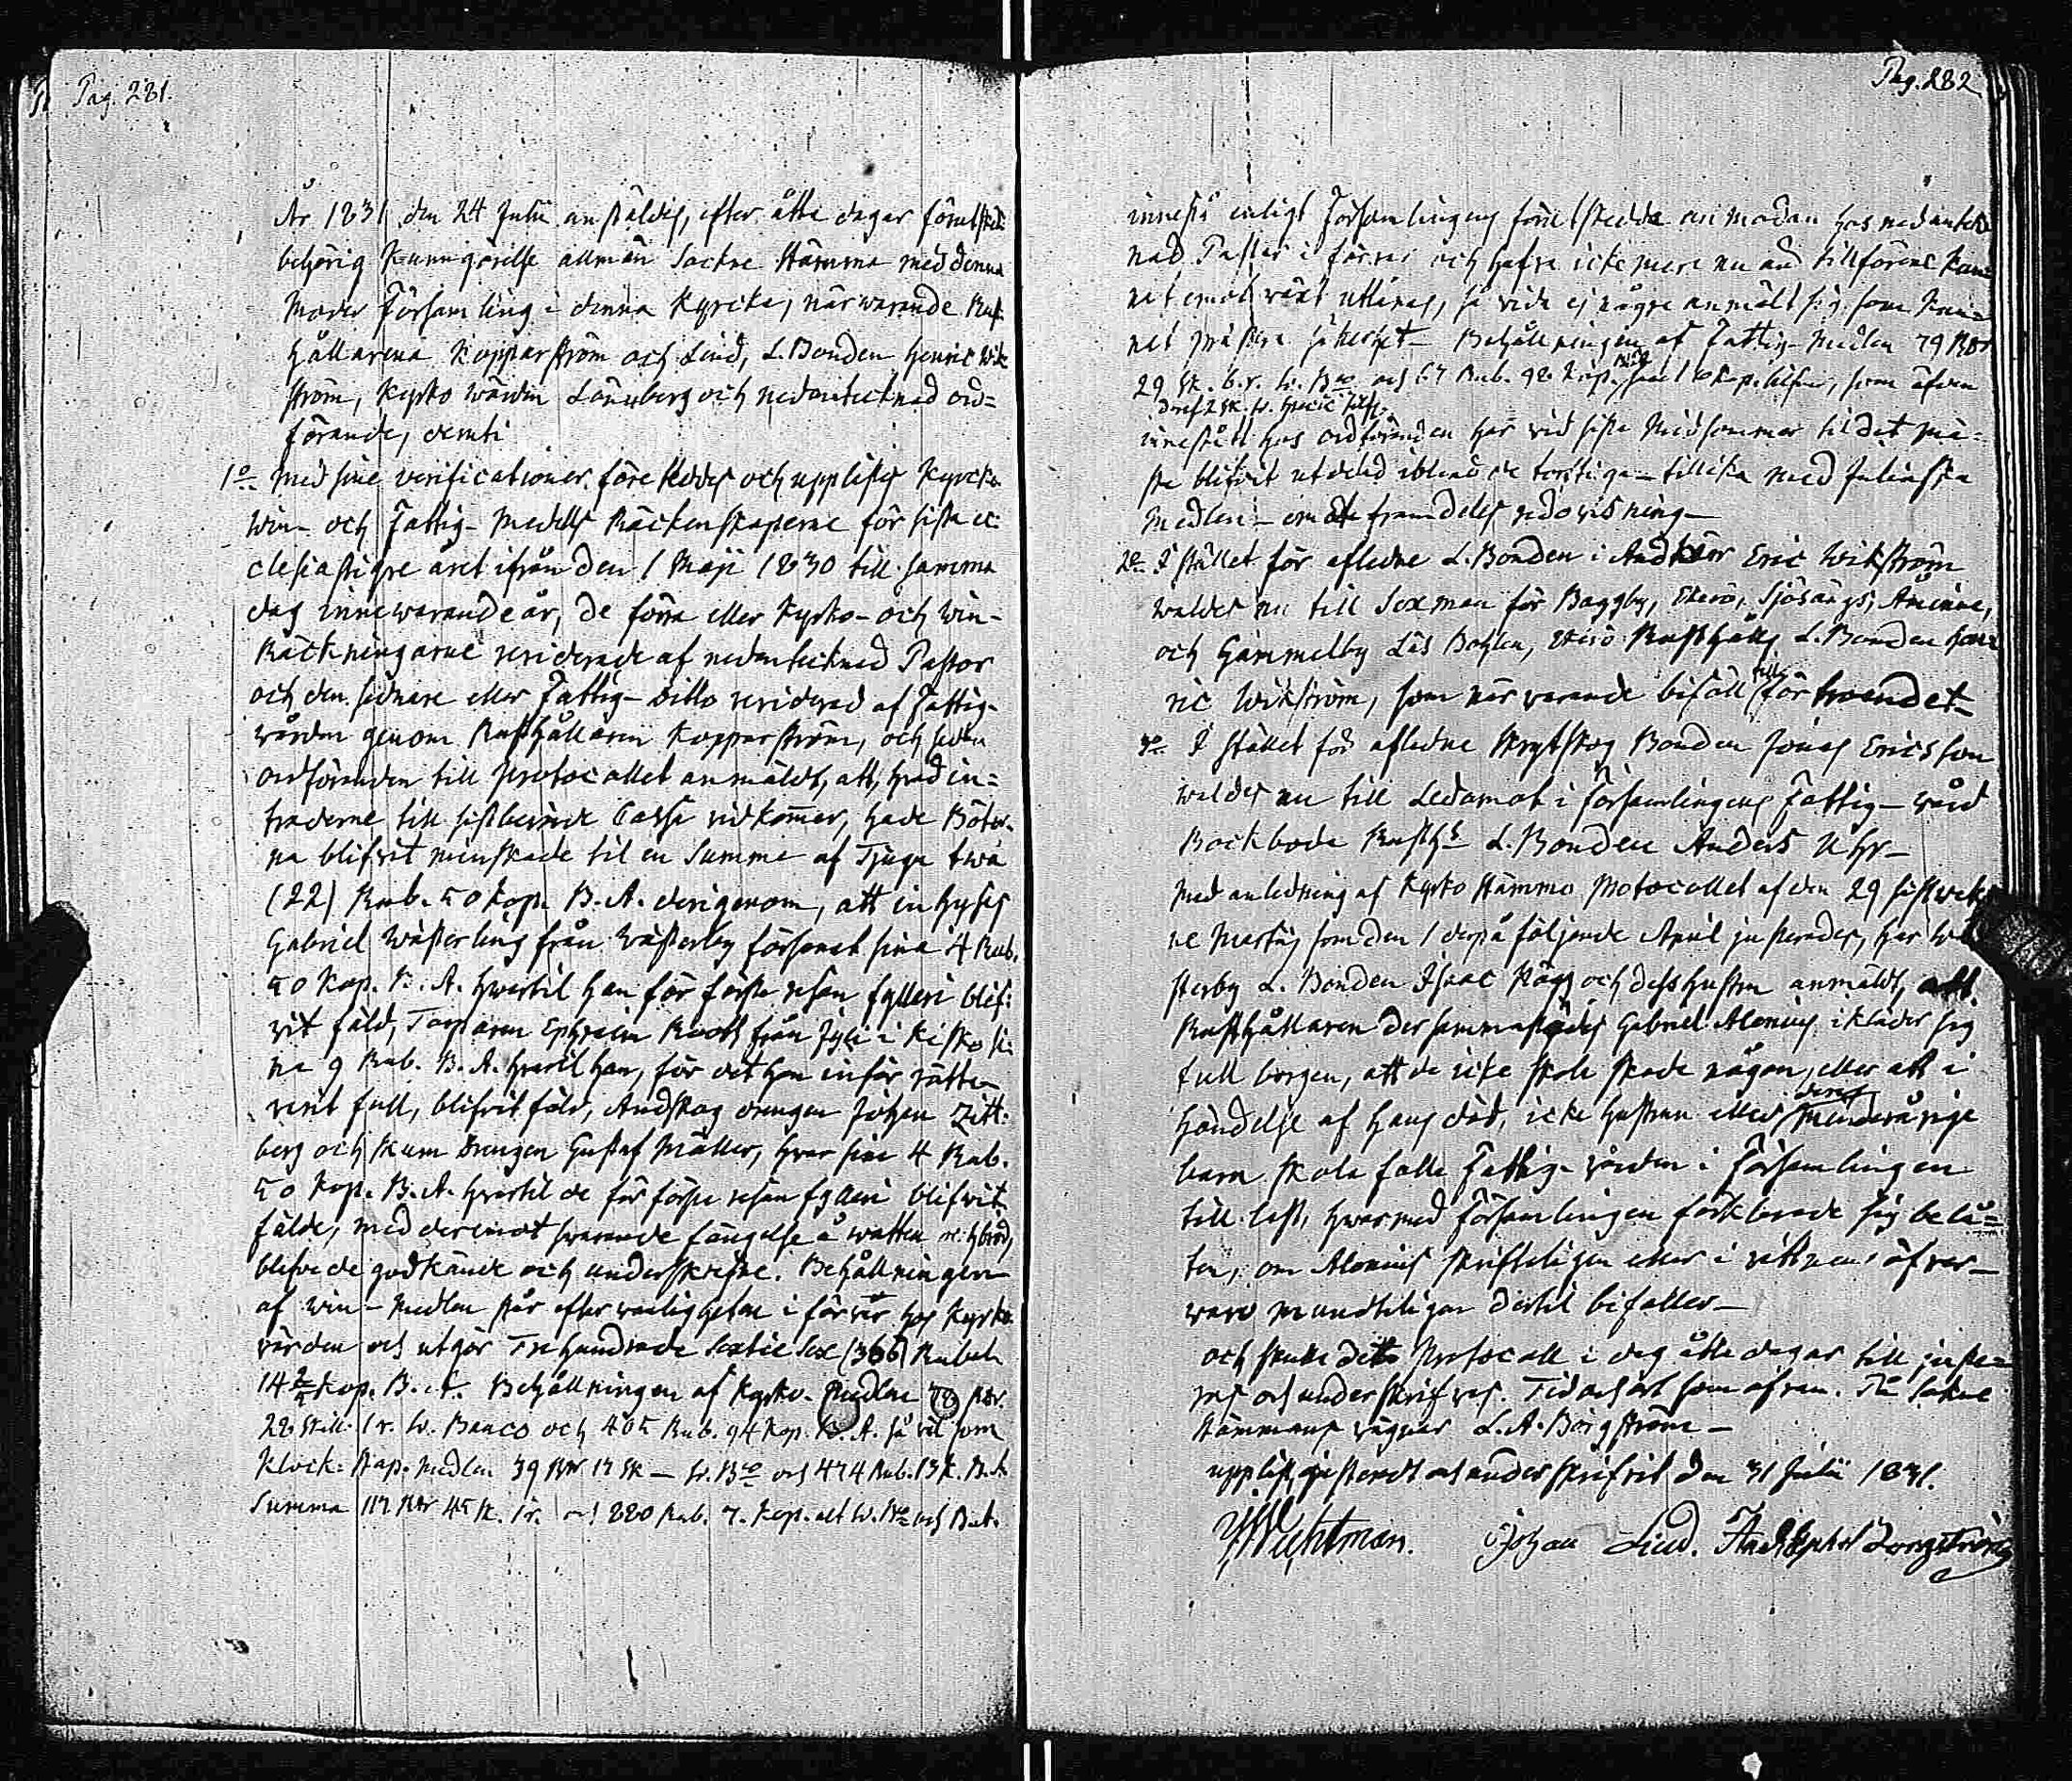 Pag. 281.
År 1831 den 24 Julii anstäldes, efter åtta dagar förutskedd
behörig Kunngörelse allmän Sockne Stämma med denna
Moder Församling i denna Kyrcka, närwarande Rust-
hållarena Kopparström och Lind, L. Bonden Henric Wik
ström, Kyrko wärden Lönnberg och nedantecknad ord=
förande, demti
1o Med sine verificationer företeddes och upplästes Kyrcko
Win- och Fattig-Medels Räckenskaperne för sista ec:
clesiastiqve året ifrån den 1 Maji 1830 till samma
dag innewarande år, de förra eller Kyrko- och Win-
Räckningarne reviderade af nedantecknad Pastor
och den sednare eller Fattig-ditto reviderad af Fattig-
wården genom Rusthållaren Kopparström, och sedan
ordföranden till Protocollet anmäldt, att, hvad in=
traderne till sistberörde Cassa vidkommer, hade Böter-
na blifvit minskade til en Summa af Tjugu twå
(22) Rub. 50 Kop. B. A. derigenom, att inhyses
Gabriel Wästerling från Wästerby försonat sina 4 Rub.
50 Kop. B. A. hwartil han för första resan fylleri blif:
vit fäld, Torparen Ephraim Rooth från i Kisko si:
na 9 Rub. B. A. hvartil han, för det han inför rätten
varit full, blifvit fäld, Andskog drengen Johan Zitt:
berg och Skum Drengen Gustaf Möller, hvar sine 4 Rub.
50 Kop. B. A. hvartil de för första resan fylleri blifvit
fälde, med deremot swarande fängelse å watten och bröd,
blefvo de godkände och underskrifne. Behållningen
af win-Medlen står efter vanligheten i förvar hos Kyrko
värden och utgör Trehundrade Sextie Sex (366) Rubel
14 2/7 Kop. B. A. Behållningen af Kyrko-Medlen 78 Rdr.
22 Skill. 1 r. Sv. Banco och 405 Rub. 94 Kop. B. A. så väl som
Klock: Stap. Medlen 39 Rdr 17 Sk — Sv. Bco och 474 Rub. 13 K. B. A.
Summa 117 Rdr 45 K. 1 r. och 880 Rub. 7. Kop. alt Sv. Bco och B. A.
Pag. 282
innestå enligt Församlingens förutskedda anmodan hos nedanteck
nad Pastor i förvar och hafva icke mera nu än tillförene kun=
nat emot ränt utlånas, så vida ej någre anmält sig som kun=
nat præstera säkerhet. Behållningen af Fattig-Medlen 79 Rdr
29 Sk. 6. r. Sv. Bco och 57 Rub. 92 Kop. som äfven
innestått hos ordföranden har vid sista Midsommar til det mä-
sta blifvit utdelad ibland de torftiga tillika med Julinska
Medlen — om framdeles redovisning —
2o I stället för aflidne L. Bonden i Andkärr Eric Wikström
waldes nu till Sexman för Baggby, Ekerö, Sjösängs, Åminne,
och Gammelby Läs Bohlen, Rusthålls L. Bonden Hen=
ric Wikström, som närvarande biföll till förtroendet
3o I stället för aflidne Skrytskog Bonden Jonas Ericsson
waldes nu till Ledamot i församlingens Fattig-wård
Bockboda Rusths L. Bonden Anders Uhr —
Med anledning af Kyrko Stämmo Protocollet af den 29 sistwek
ne Martii, som den 1 derpå följande April justerades, har Wä
sterby L. Bonden Isaac Stägs och dess hustru anmäldt, att
Rusthållaren dersammastädes Gabriel Alenius ikläder sig
full borgen, att de icke skola skada någon, eller att i
händelse af hans död, icke hustrun eller deras minderårige
barn skola falla Fattig-vården i Församlingen
till last, hwarmed Församlingen förklarade sig belå=
ten, om Alenius skrifteligen eller i vittnens öfver-
varo mundteligen dertil bifaller —
och skulle detta Protocoll i dag åtta dagar till juste=
ras och underskrifvas. Tid och ort som ofvan. På Sockne
Stämmans vägnar L. A. Borgström —
uppläst, justerat och underskrifvit den 31 Julii 1831.
Wichtman. Johan Lind.